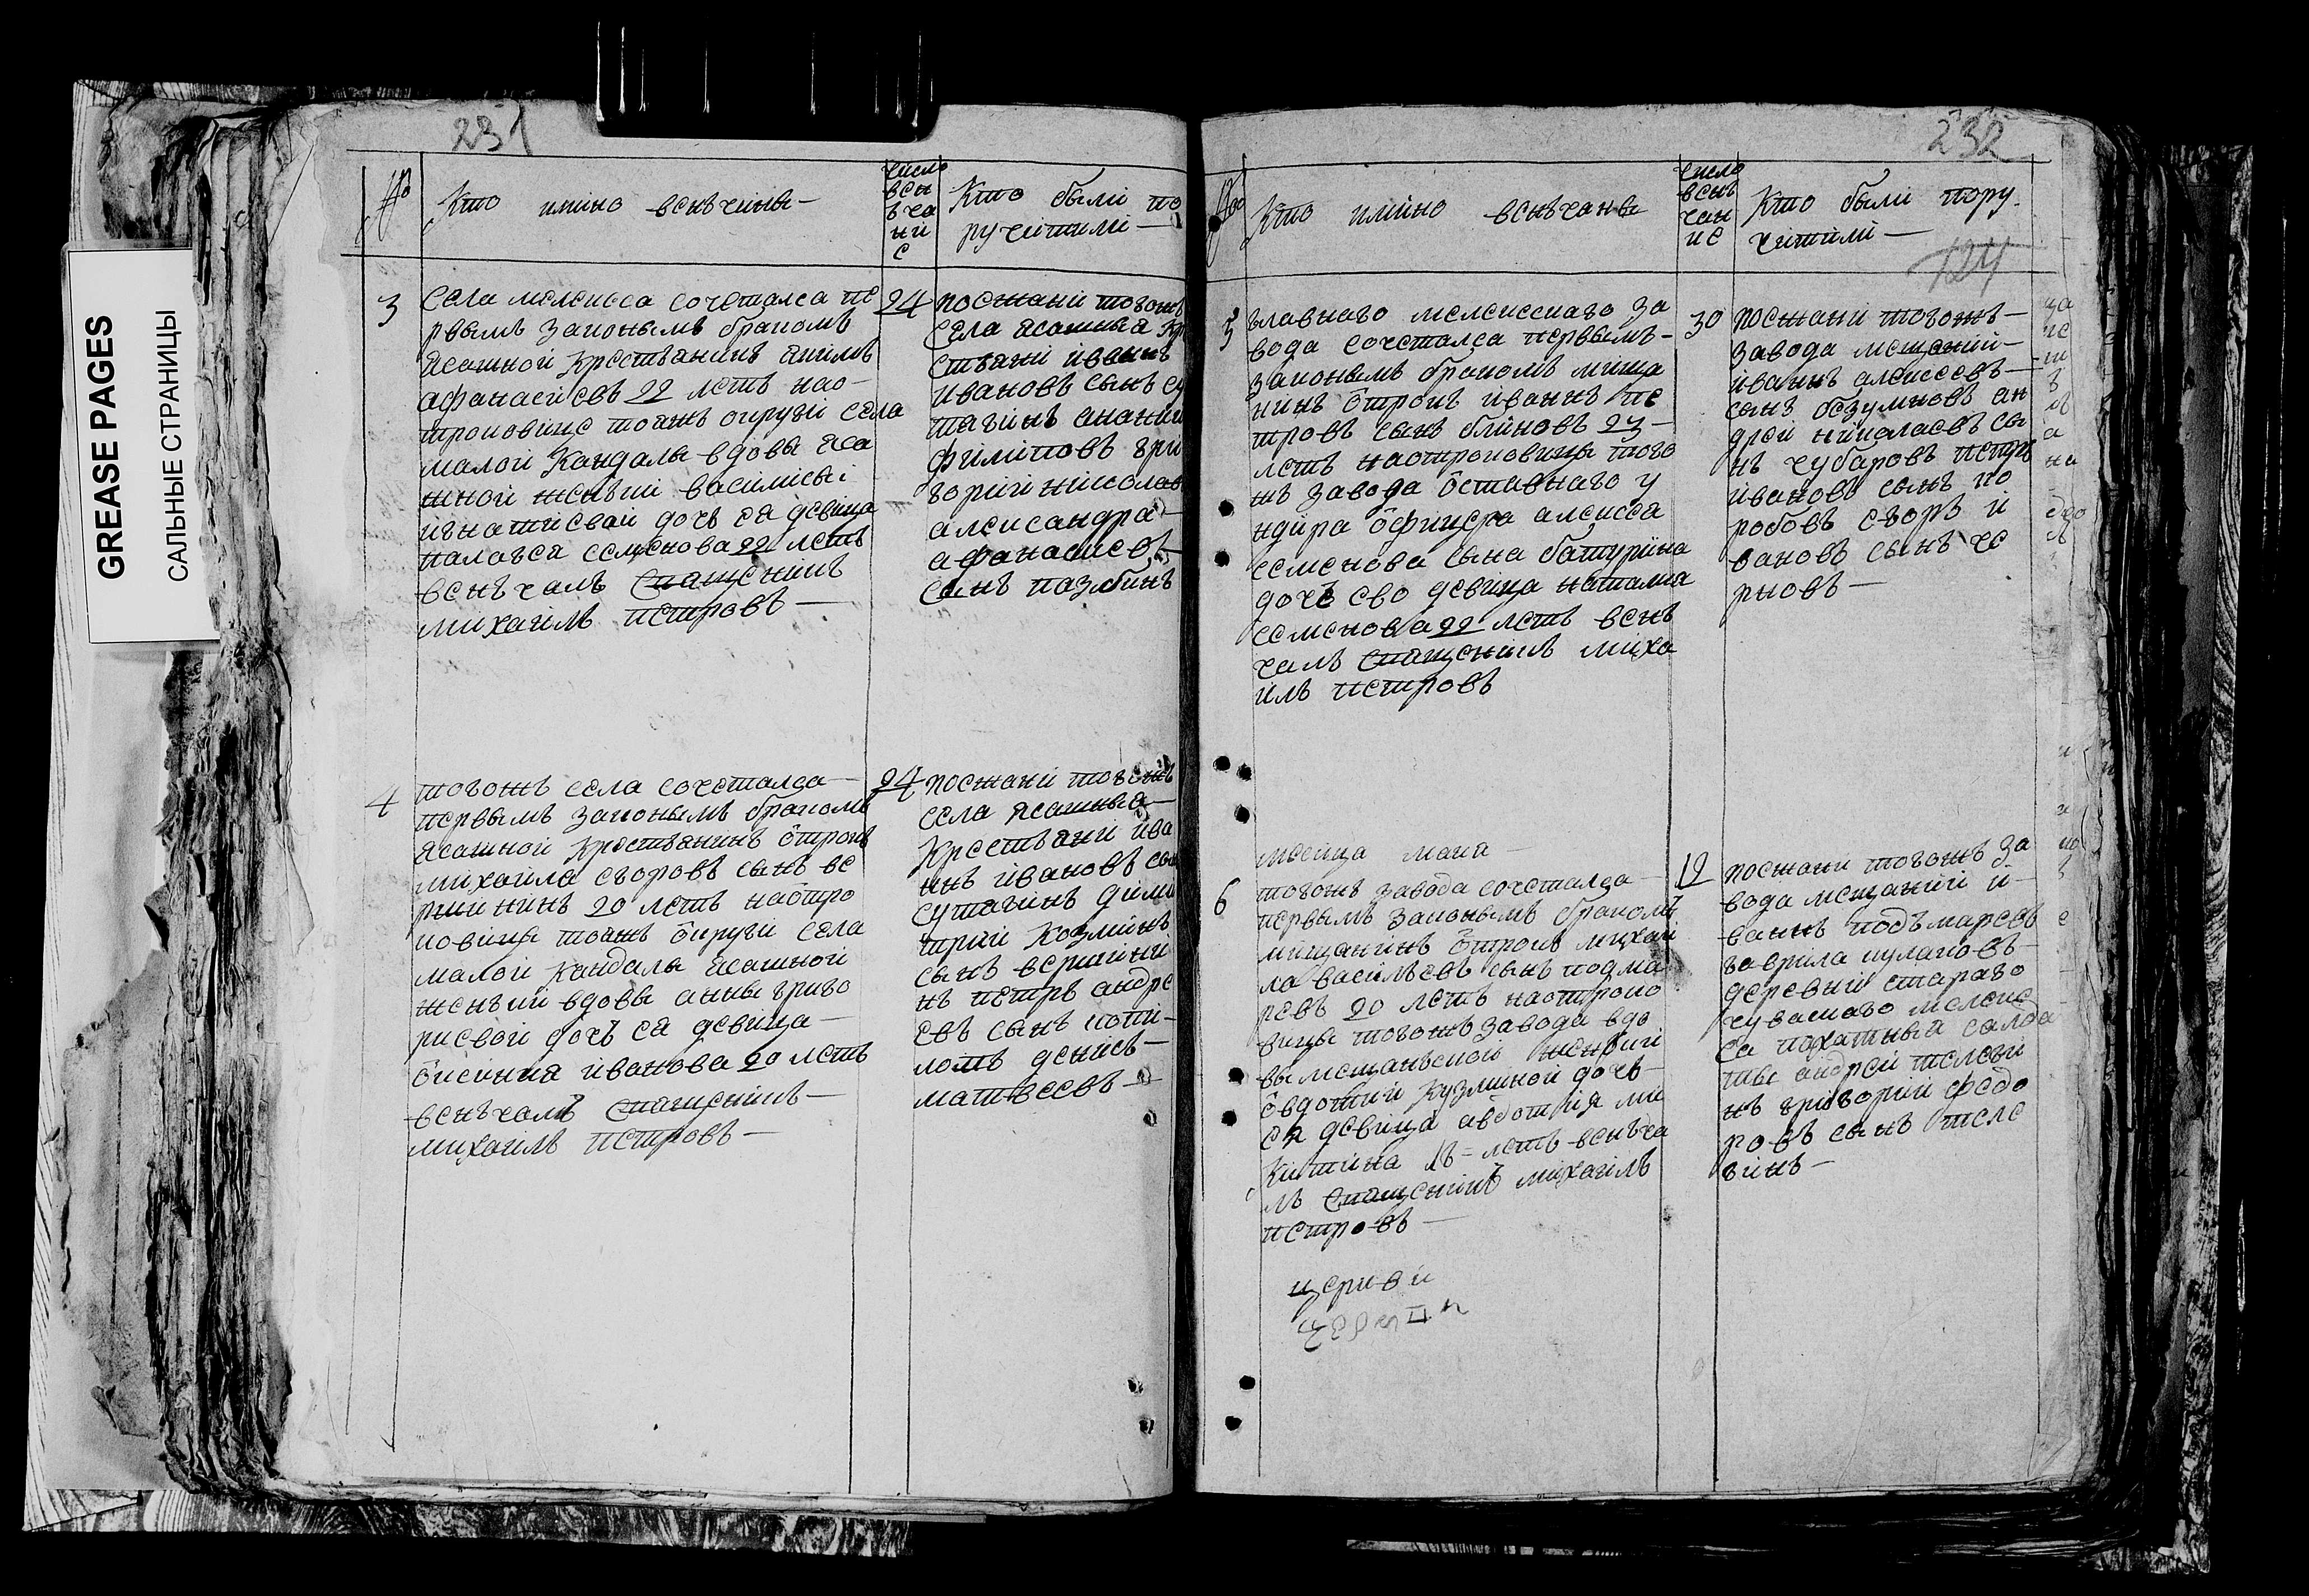 GREASE PAGES
САЛЬНЫЕ СТРАНИЦЫ
231
№
Кто имино венъчины
число
вен
ъча
ни
е
Кто были по
ручители
3
Села мелекеса сочетался пе
рвымъ законымъ бракомъ
ясашной крестьянинъ якимъ
афанасиевъ 22 летъ нао
троковице тояжъ округи села
малой Кандалы вдовы яса
шной женъки василисы
игнатиевой дочь ея девица
палагея семенова 22 летъ
венъчалъ священикъ
михаилъ петровъ
24
посжани тогожъ
села ясашныя кр
стьяни иванъ
ивановъ сынъ су
тягинъ анани
филиповъ гри
горий николав
александра
афанасиевъ
сынъ пазлбинъ
4
тогожъ села сочетался
первымъ законымъ бракомъ
ясашной крестьянинъ отрокъ
михаила егоровъ сынъ ве
ршининъ 20 летъ наотро
ковицы тояжъ округи села
малой кандалы ясашной
женъки вдовы анны григо
риевой дочъ ея девица
оксиния иванова 20 летъ
венъчалъ священикъ
михаилъ петровъ
24
посжани тогожъ
села ясашныя
Крестьяни ива
нъ ивановъ сы
сутягинъ дими
трий козминъ
сынъ вершини
нъ петръ андре
евъ сынъ
денисъ
матвеевъ
232
124
№
Кто имино венъчаны
число
венъ
чан
ие
Кто были пору
чители
5
главнаго мелекесскаго за
вода сочетался первымъ
законымъ бракомъ меща
нинъ отрокъ иванъ пе
тровъ сынъ блиновъ 23
летъ наотроковицы того
жъ завода отставнаго у
ндира офицера алексея
семенова сына батурина
дочь ево девица наталия
семенова 22 летъ венъ
чалъ священикъ миха
илъ петровъ
30
посжани тогожъ
завода мещаний
иванъ алексеевъ
сынъ безумновъ ан
дреи николаевъ сы
нъ чубаровъ петръ
ивановъ сынъ ко
робовъ егоръ и
вановъ сынъ че
рновъ
месяца маия
6
тогожъ завода сочетался
первымъ законымъ бракомъ
мищанинъ отрокъ михаи
ла василъевъ сынъ подма
ревъ 20 летъ наотроко
вицы тогожъ завода вдо
вы мещанъской женъки
овдотии кузминой дочь
ея девица авдотия ми
китина 18 летъ венъча
лъ священикъ михаилъ
петровъ
12
посжани тогожъ за
вода мещании и
ванъ подъмаревъ
гаврила кулаковъ
деревни стараго
чувашаго мелеке
са пахатныя салда
ты андреи телеги
нъ григорий федо
ровъ сынъ теле
гинъ
церкви